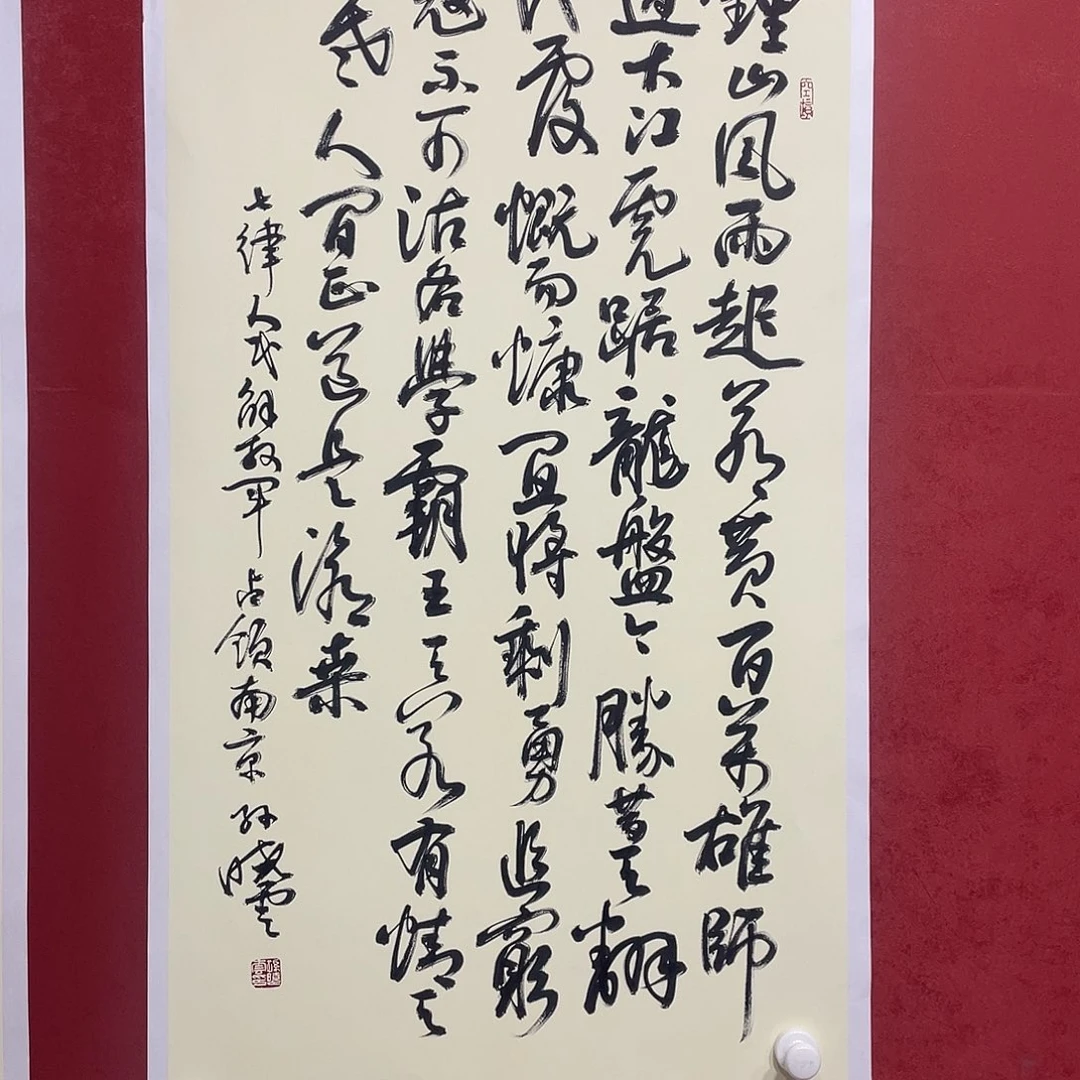 鍾山風雨起蒼黄百萬雄師
過大江虎踞龍盤今勝昔天翻
地覆慨而慷宜將剩勇追窮
寇不可沽名學霸王天若有情天
老人間正道是滄桑
七律人民解放軍占領南京孫曉雲